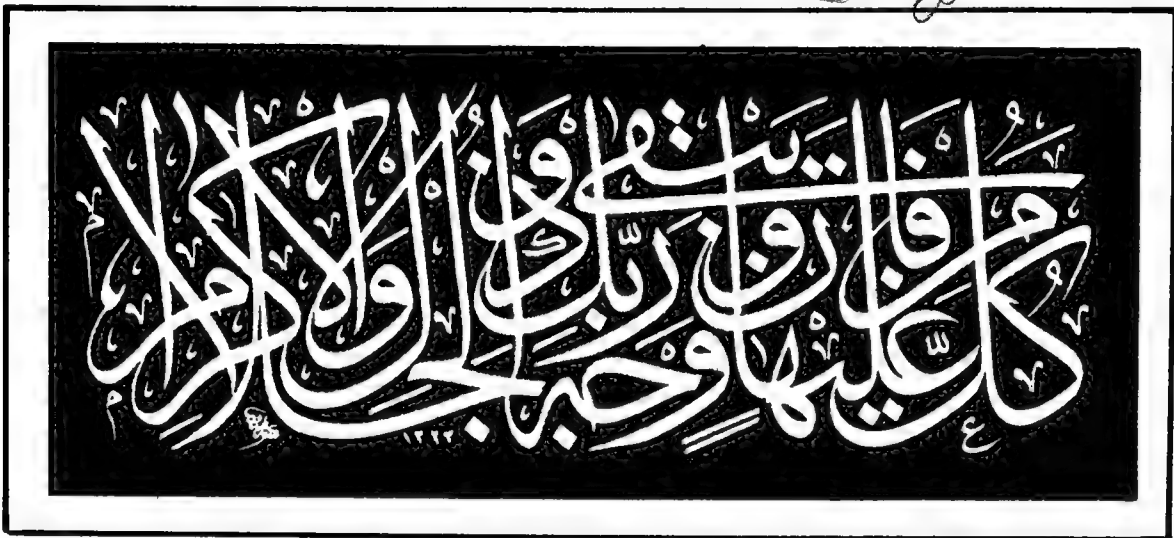 كل من عليها فان ويبقى وجه ربك ذو الجلال والاكرام
١٣٢٣